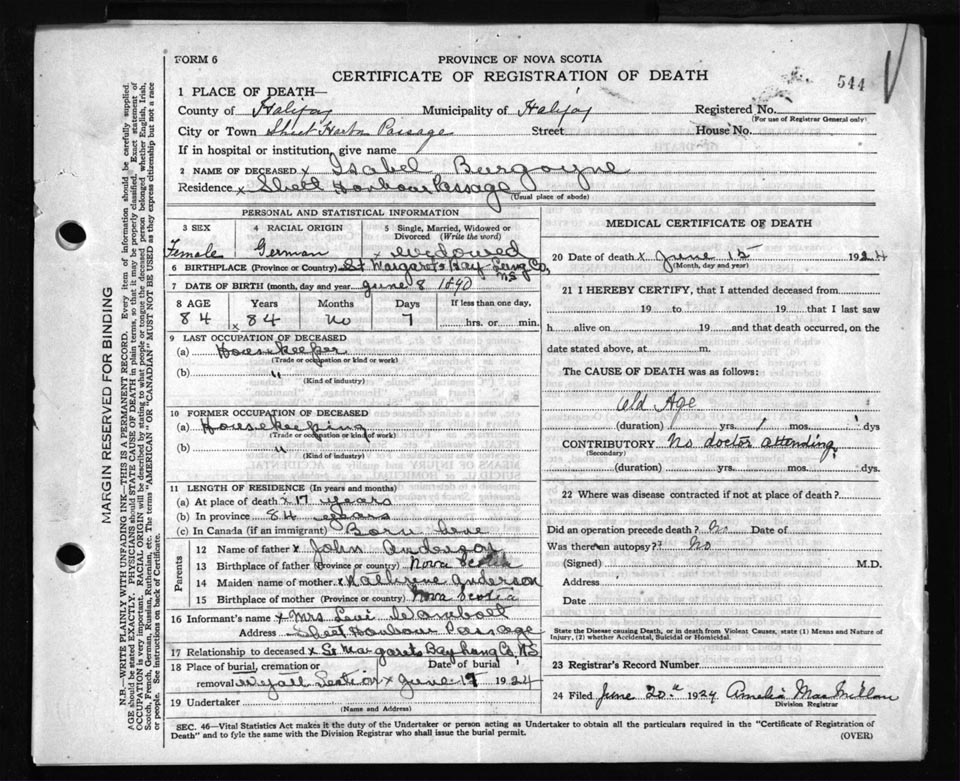 FORM 6
PROVINCE OF NOVA SCOTIA
CERTIFICATE OF REGISTRATION OF DEATH
544
1 PLACE OF DEATH—
County of Halifax Municipality of Halifax Registered No.
(For use of Registrar General only)
City or Town Sheet Harbor Passage Street House No.
If in hospital or institution, give name
2 NAME OF DECEASED x Isabel Burgoyne
Residence x Sheet Harbour Passage
(Usual place of abode)
PERSONAL AND STATISTICAL INFORMATION
3 SEX 4 RACIAL ORIGIN 5 Single, Married, Widowed or Divorced (Write the word)
Female German x widowed
6 BIRTHPLACE (Province or Country) St Margarets Bay Lung Co, NS
7 DATE OF BIRTH (month, day and year) June 8 1840
8 AGE Years Months Days If less than one day,
84 x 84 No 7 hrs. or min.
9 LAST OCCUPATION OF DECEASED
(a) Housekeeper
(Trade or occupation or kind or work)
(b) "
(Kind of industry)
10 FORMER OCCUPATION OF DECEASED
(a) Housekeeping
(Trade or occupation or kind of work)
(b) "
(Kind of industry)
11 LENGTH OF RESIDENCE (In years and months)
(a) At place of death x 17 years
(b) In province 84 years
(c) In Canada (if an immigrant) Born here
Parents
12 Name of father x John
13 Birthplace of father (Province or country) Nova Scotia
14 Maiden name of mother x Katherine Anderson
15 Birthplace of mother (Province or country) Nova Scotia
16 Informant's name x Mrs Levi
Address Sheet Harbour Passage
17 Relationship to deceased x St Margarets Bay Lung Co, NS
18 Place of burial, cremation or Date of burial
removal x June 17 1924
19 Undertaker
(Name and Address)
MEDICAL CERTIFICATE OF DEATH
20 Date of death x June 15 1924
(Month, day and year)
21 I HEREBY CERTIFY, that I attended deceased from
19 to 19 that I last saw
h alive on 19 and that death occurred, on the
date stated above, at m.
The CAUSE OF DEATH was as follows:
Old Age
(duration) yrs. mos. dys
CONTRIBUTORY No doctor attending
(Secondary)
(duration) yrs. mos. dys.
22 Where was disease contracted if not at place of death?
Did an operation precede death? No Date of
Was there an autopsy? No
(Signed) M.D.
Address
Date
State the Disease causing Death, or in death from Violent Causes, state (1) Means and Nature of Injury, (2) whether Accidental, Suicidal or Homicidal.
23 Registrar's Record Number
24 Filed June 20th 1924 Amelia
Division Registrar
SEC. 46—Vital Statistics Act makes it the duty of the Undertaker or person acting as Undertaker to obtain all the particulars required in the "Certificate of Registration of
Death" and to fyle the same with the Division Registrar who shall issue the burial permit.
(OVER)
MARGIN RESERVED FOR BINDING
N.B.—WRITE PLAINLY WITH UNFADING INK—THIS IS A PERMANENT RECORD. Every item of information should be carefully supplied.
AGE should be stated EXACTLY. PHYSICIANS should STATE CAUSE OF DEATH in plain terms, so that it may be properly classified. Exact statement of
OCCUPATION is very important. RACIAL ORIGIN will be described by stating to what people or tongue the deceased person belonged whether English, Irish,
Scotch, French, German, Russian, Ruthenian, etc. The terms "AMERICAN" or "CANADIAN" MUST NOT BE USED as they express citizenship but not a race
or people. See instructions on back of Certificate.